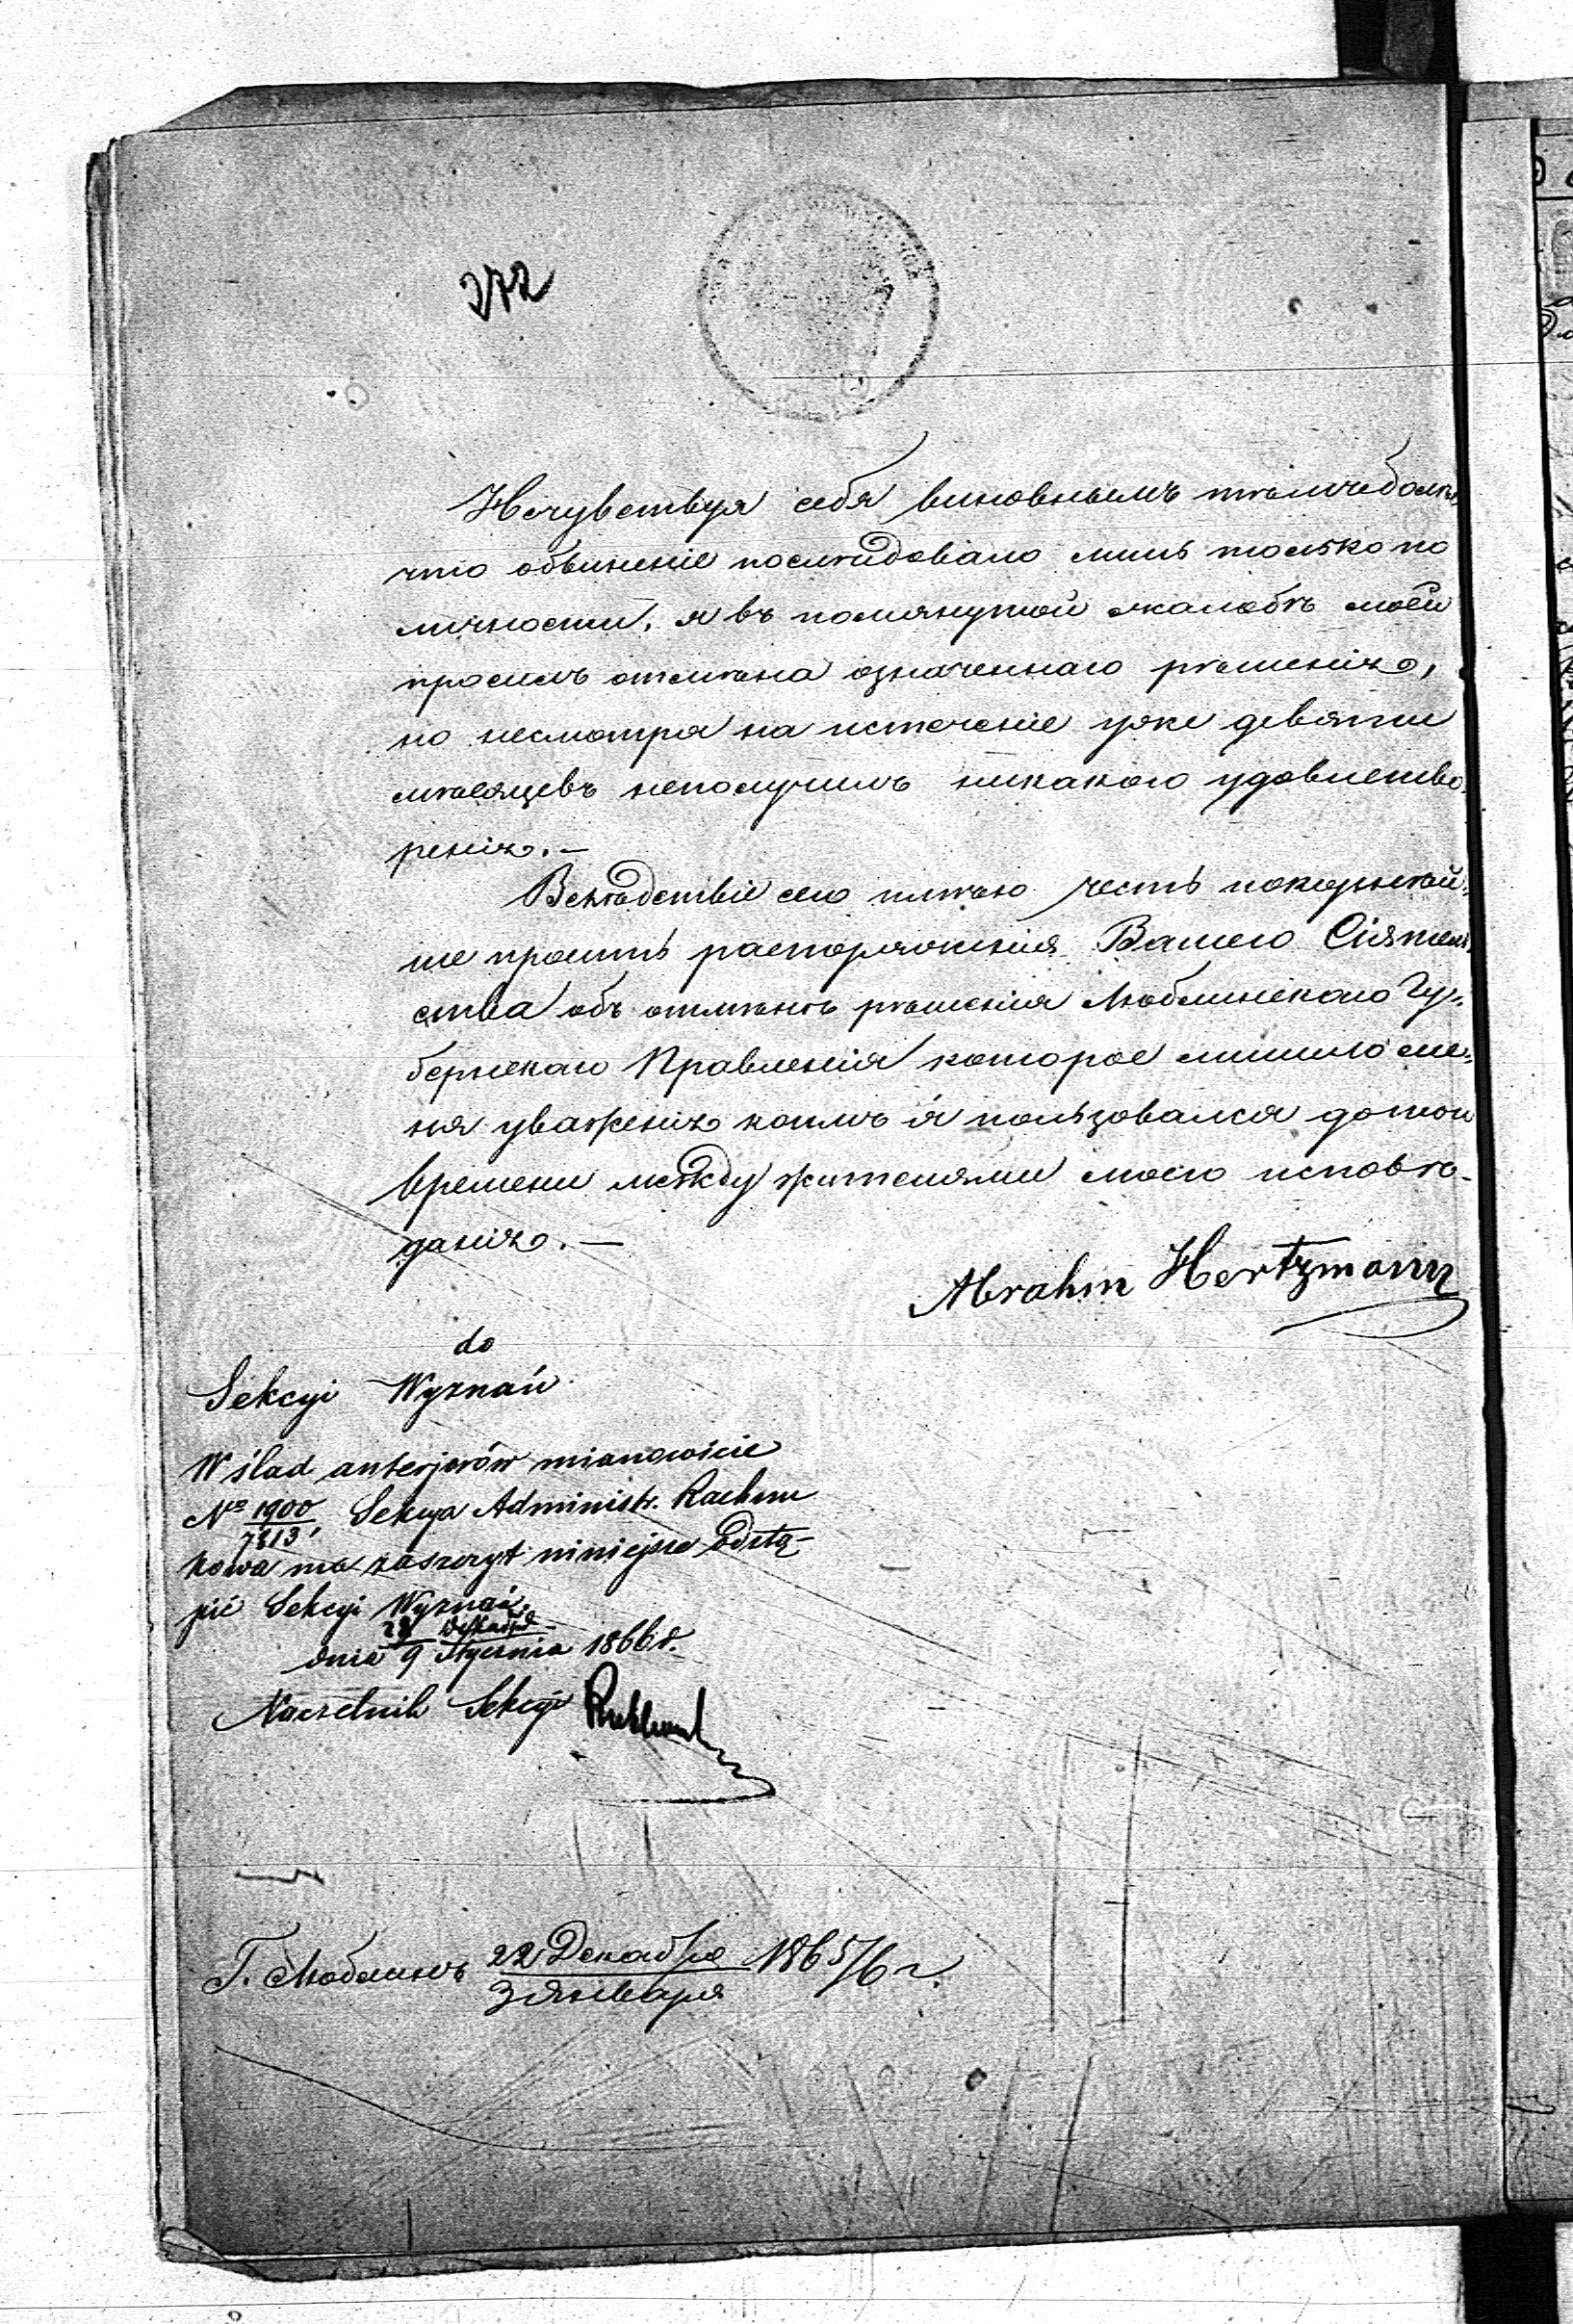 372
Нечувствуя себя виновнымъ тѣмъ болѣе
что обвиненіе послѣдовало лишь только по
личности, я въ помянутой жалобѣ моей
просилъ отмѣна означеннаго рѣшенія,
но несмотря на истеченіе уже девяти
мѣсяцевъ неполучилъ никакого удовлетво
ренія. —
Вслѣдствіе сего имѣю честь покорнѣй-
ше просить распоряженія Вашего Сіятель
ства объ отмѣнѣ рѣшенія Люблинскаго Гу-
бернскаго Правленія которое лишило ме-
ня уваженія коимъ я пользовался до того
времени между жителями моего исповѣ-
данія. —
Abrahm Hertzmann
do
Sekcyi Wyznań
W ślad anterjorów mianowicie
Nº 1900/7813, Sekcya Administr. Rachun
kowa ma zaszczyt niniejsze odstą-
pić Sekcyi Wyznań.
dnia 28/9 Stycznia 1866 r.
Naczelnik Sekcyi
Г. Люблинъ 22 Декабря / 3 Января 1865/6 г.